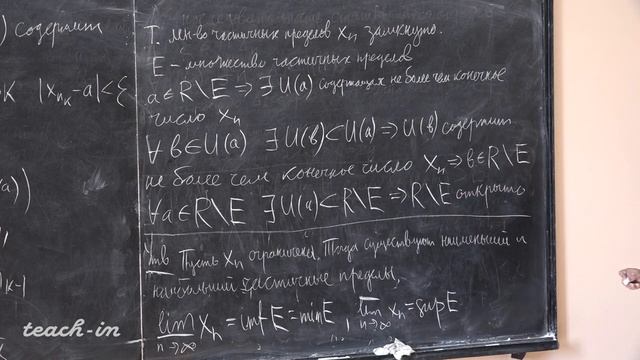 ) содержит
K |x_{n_k}-a|<ε
a))
k-1
Т. мн-во частичных пределов x_n замкнуто.
E – множество частичных пределов
a∈R\E ⇒ ∃ U(a) содержащая не более чем конечное
число x_n
∀ b∈U(a) ∃U(b)⊂U(a) ⇒ U(b) содержит
не более чем конечное число x_n ⇒ b∈R\E
∀a∈R\E ∃U(a)⊂R\E ⇒ R\E открыто
Утв Пусть x_n ограничены. Тогда существуют наименьший и
наибольший частичные пределы,
\underline{lim}_{n→∞} x_n = inf E = min E, \overline{lim}_{n→∞} x_n = sup E
teach-in